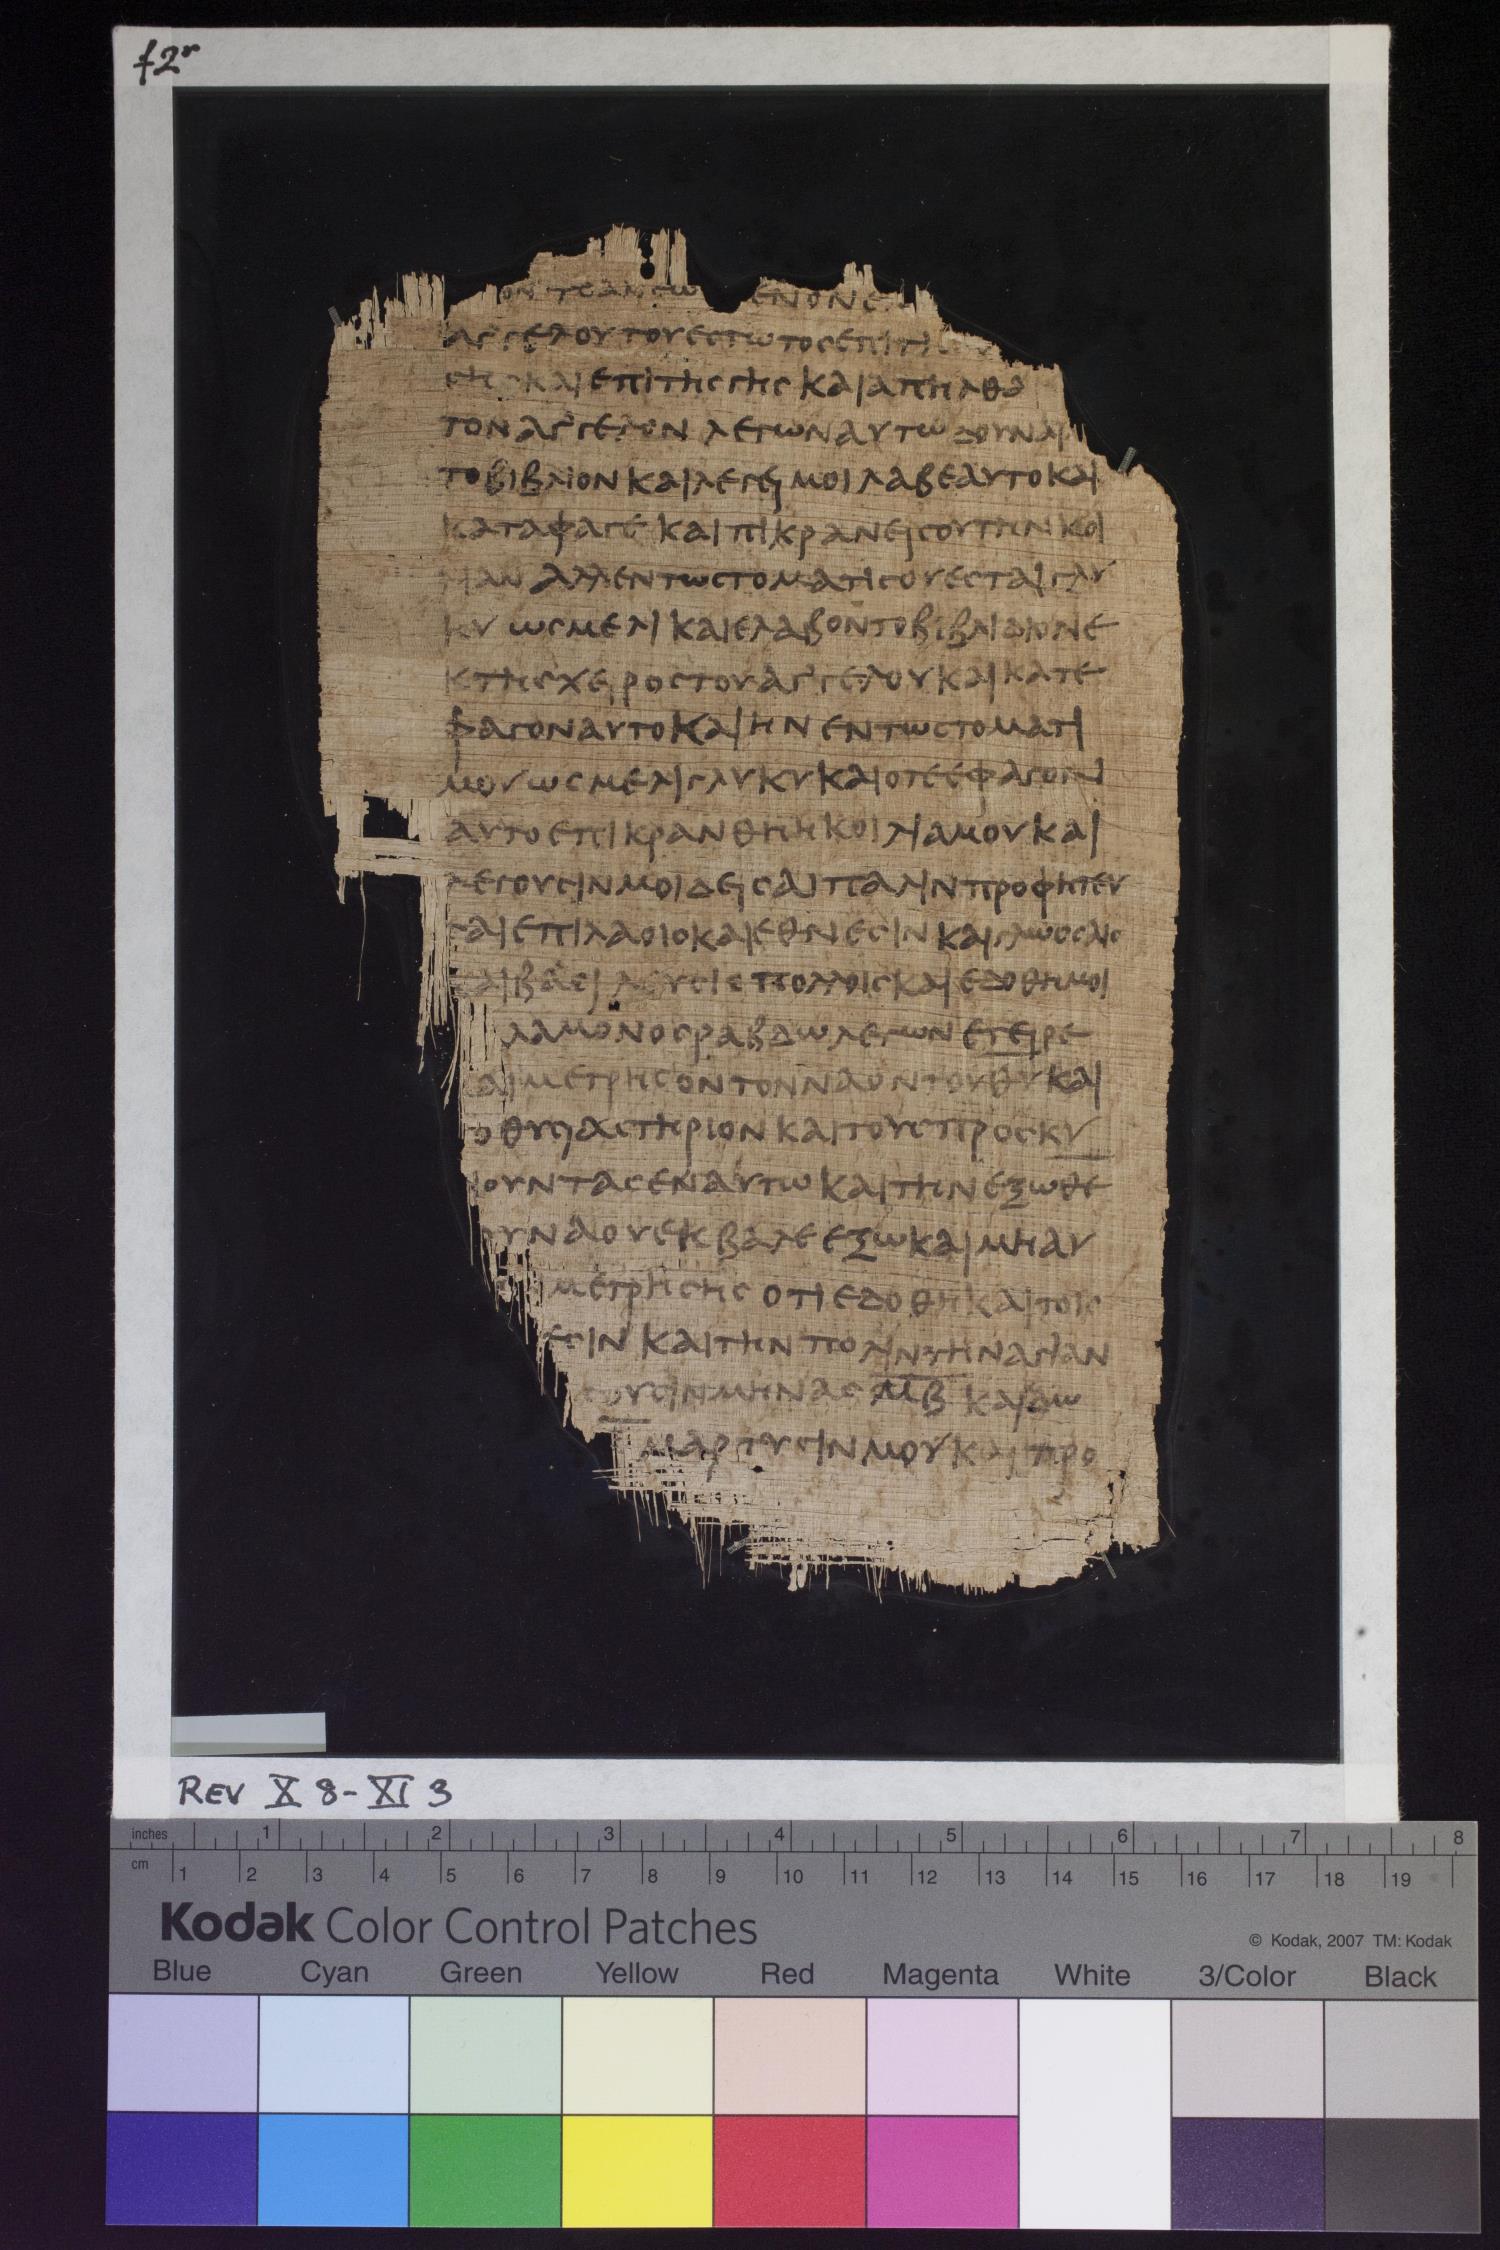 f2r
ΑΓΓΕΛΟΥ ΤΟΥ ΕϹΤΩΤΟϹ ΕΠΙ
ΚΑΙ ΕΠΙ ΤΗϹ ΓΗϹ ΚΑΙ ΑΠΗΛΘΑ
ΤΟΝ ΑΓΓΕΛΟΝ ΛΕΓΩΝ ΑΥΤΩ ΔΟΥΝΑΙ
ΤΟ ΒΙΒΛΙΟΝ ΚΑΙ ΛΕΓΕΙ ΜΟΙ ΛΑΒΕ ΑΥΤΟ ΚΑΙ
ΚΑΤΑΦΑΓΕ ΚΑΙ ΠΙΚΡΑΝΕΙ ϹΟΥ ΤΗΝ ΚΟΙ
ΛΙΑΝ ΑΛΛ ΕΝ ΤΩ ϹΤΟΜΑΤΙ ϹΟΥ ΕϹΤΑΙ ΓΛΥ
ΚΥ ΩϹ ΜΕΛΙ ΚΑΙ ΕΛΑΒΟΝ ΤΟ ΒΙΒΛΙΔΙΟΝ Ε
Κ ΤΗϹ ΧΕΙΡΟϹ ΤΟΥ ΑΓΓΕΛΟΥ ΚΑΙ ΚΑΤΕ
ΦΑΓΟΝ ΑΥΤΟ ΚΑΙ ΗΝ ΕΝ ΤΩ ϹΤΟΜΑΤΙ
ΜΟΥ ΩϹ ΜΕΛΙ ΓΛΥΚΥ ΚΑΙ ΟΤΕ ΕΦΑΓΟΝ
ΑΥΤΟ ΕΠΙΚΡΑΝΘΗ Η ΚΟΙΛΙΑ ΜΟΥ ΚΑΙ
ΛΕΓΟΥϹΙΝ ΜΟΙ ΔΕΙ ϹΑΙ ΠΑΛΙΝ ΠΡΟΦΗΤΕΥ
ϹΑΙ ΕΠΙ ΛΑΟΙϹ ΚΑΙ ΕΘΝΕϹΙΝ ΚΑΙ ΓΛΩϹϹΑΙϹ
ΚΑΙ ΒΑϹΙΛΕΥϹΙ ΠΟΛΛΟΙϹ ΚΑΙ ΕΔΟΘΗ ΜΟΙ
ΛΑΜΟΝΟϹ ΡΑΒΔΩ ΛΕΓΩΝ ΕΓΕΙΡΕ
ΚΑΙ ΜΕΤΡΗϹΟΝ ΤΟΝ ΝΑΟΝ ΤΟΥ ΘΥ ΚΑΙ
Ο ΘΥϹΙΑϹΤΗΡΙΟΝ ΚΑΙ ΤΟΥϹ ΠΡΟϹΚΥ
ΝΟΥΝΤΑϹ ΕΝ ΑΥΤΩ ΚΑΙ ΤΗΝ ΕΞΩΘΕ
ΟΥ ΝΑΟΥ ΕΚΒΑΛΕ ΕΞΩ ΚΑΙ ΜΗ ΑΥ
ΜΕΤΡΗϹΗϹ ΟΤΙ ΕΔΟΘΗ ΚΑΙ ΤΟΙϹ
ΕϹΙΝ ΚΑΙ ΤΗΝ ΠΟΛΙΝ ΤΗΝ ΑΓΙΑΝ
ϹΟΥϹΙΝ ΜΗΝΑϹ ΜΒ ΚΑΙ ΔΩ
ΜΑΡΤΥϹΙΝ ΜΟΥ ΚΑΙ ΠΡΟ
REV X 8-XI 3
inches 1 2 3 4 5 6 7 8
cm 1 2 3 4 5 6 7 8 9 10 11 12 13 14 15 16 17 18 19
Kodak Color Control Patches
© Kodak, 2007 TM: Kodak
Blue Cyan Green Yellow Red Magenta White 3/Color Black